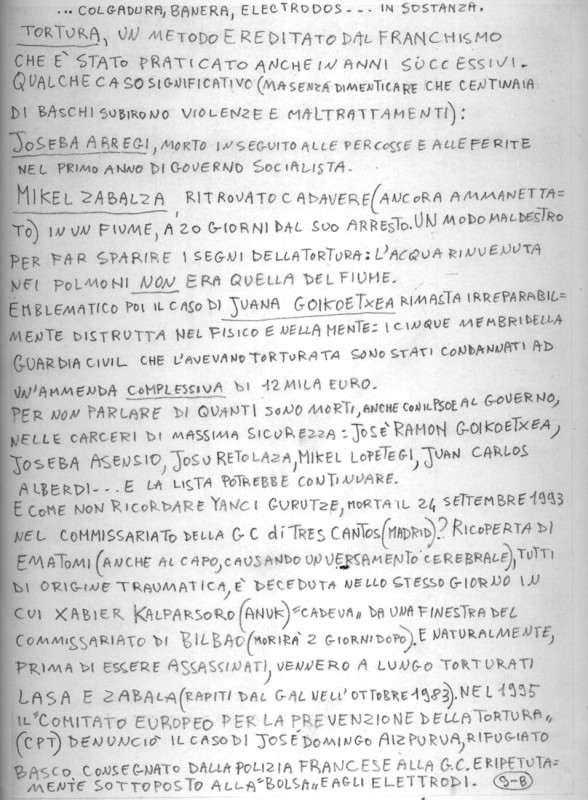 ... COLGADURA, BANERA, ELECTRODOS --- IN SOSTANZA.
TORTURA, UN METODO EREDITATO DAL FRANCHISMO
CHE E' STATO PRATICATO ANCHE IN ANNI SUCCESSIVI.
QUALCHE CASO SIGNIFICATIVO (MA SENZA DIMENTICARE CHE CENTINAIA
DI BASCHI SUBIRONO VIOLENZE E MALTRATTAMENTI):
JOSEBA ARREGI, MORTO IN SEGUITO ALLE PERCOSSE E ALLE FERITE
NEL PRIMO ANNO DI GOVERNO SOCIALISTA.
MIKEL ZABALZA, RITROVATO CADAVERE (ANCORA AMMANETTA=
TO) IN UN FIUME, A 20 GIORNI DAL SUO ARRESTO. UN MODO MALDESTRO
PER FAR SPARIRE I SEGNI DELLA TORTURA: L'ACQUA RINVENUTA
NEI POLMONI NON ERA QUELLA DEL FIUME.
EMBLEMATICO POI IL CASO DI JUANA GOIKOETXEA RIMASTA IRREPARABIL=
MENTE DISTRUTTA NEL FISICO E NELLA MENTE: I CINQUE MEMBRI DELLA
GUARDIA CIVIL CHE L'AVEVANO TORTURATA SONO STATI CONDANNATI AD
UN'AMMENDA COMPLESSIVA DI 12 MILA EURO.
PER NON PARLARE DI QUANTI SONO MORTI, ANCHE CON IL PSOE AL GOVERNO,
NELLE CARCERI DI MASSIMA SICUREZZA: JOSÈ RAMON GOIKOETXEA,
JOSEBA ASENSIO, JOSU RETOLAZA, MIKEL LOPETEGI, JUAN CARLOS
ALBERDI --- E LA LISTA POTREBBE CONTINUARE.
E COME NON RICORDARE YANCI GURUTZE, MORTA IL 24 SETTEMBRE 1993
NEL COMMISSARIATO DELLA G C di TRES CANTOS (MADRID)? RICOPERTA DI
EMATOMI (ANCHE AL CAPO, CAUSANDO UN VERSAMENTO CEREBRALE), TUTTI
DI ORIGINE TRAUMATICA, E' DECEDUTA NELLO STESSO GIORNO IN
CUI XABIER KALPARSORO (ANUK) "CADEVA" DA UNA FINESTRA DEL
COMMISSARIATO DI BILBAO (MORIRÀ 2 GIORNI DOPO). E NATURALMENTE,
PRIMA DI ESSERE ASSASSINATI, VENNERO A LUNGO TORTURATI
LASA E ZABALA (RAPITI DAL GAL NELL'OTTOBRE 1983). NEL 1995
IL "COMITATO EUROPEO PER LA PREVENZIONE DELLA TORTURA"
(CPT) DENUNCIÒ IL CASO DI JOSÉ DOMINGO AIZPURUA, RIFUGIATO
BASCO, CONSEGNATO DALLA POLIZIA FRANCESE ALLA G.C. E RIPETUTA=
MENTE SOTTOPOSTO ALLA "BOLSA" E AGLI ELETTRODI. 9-B